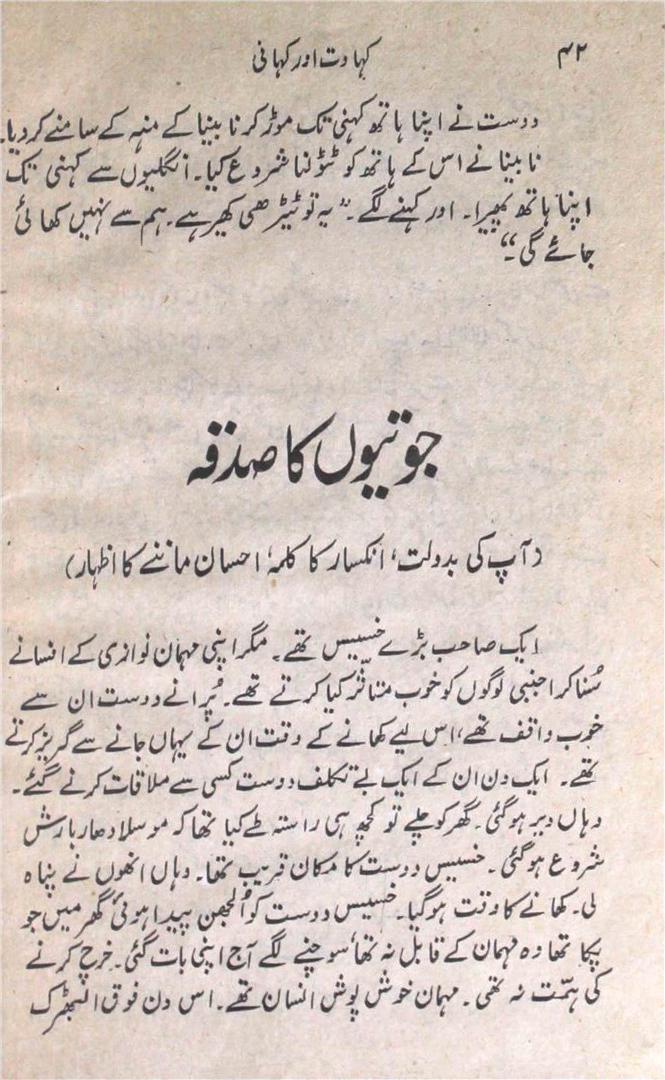 ۴۲ کہاوت اور کہانی
دوست نے اپنا ہاتھ کہنی تک موڑ کر نابینا کے منہ کے سامنے کر دیا۔
نابینا نے اس کے ہاتھ کو ٹٹولنا شروع کیا۔ انگلیوں سے کہنی تک
اپنا ہاتھ پھیرا۔ اور کہنے لگے۔ ”یہ تو ٹیڑھی کھیر ہے۔ ہم سے نہیں کھائی
جائے گی۔“
جوتیوں کا صدقہ
(آپ کی بدولت، انکسار کا کلمہ، احسان ماننے کا اظہار)
ایک صاحب بڑے خسیس تھے۔ مگر اپنی مہمان نوازی کے افسانے
سُنا کر اجنبی لوگوں کو خوب متاثّر کیا کرتے تھے۔ پُرانے دوست ان سے
خوب واقف تھے، اس لیے کھانے کے وقت ان کے یہاں جانے سے گریز کرتے
تھے۔ ایک دن ان کے ایک بے تکلف دوست کسی سے ملاقات کرنے گئے۔
وہاں دیر ہوگئی۔ گھر کو چلے تو کچھ ہی راستہ طے کیا تھا کہ موسلادھار بارش
شروع ہوگئی۔ خسیس دوست کا مکان قریب تھا۔ وہاں انھوں نے پناہ
لی۔ کھانے کا وقت ہوگیا۔ خسیس دوست کو اُلجھن پیدا ہوئی گھر میں جو
پکا تھا وہ مہمان کے قابل نہ تھا، سوچنے لگے آج اپنی بات گئی۔ خرچ کرنے
کی ہمّت نہ تھی۔ مہمان خوش پوش انسان تھے۔ اس دن فوق البھڑک